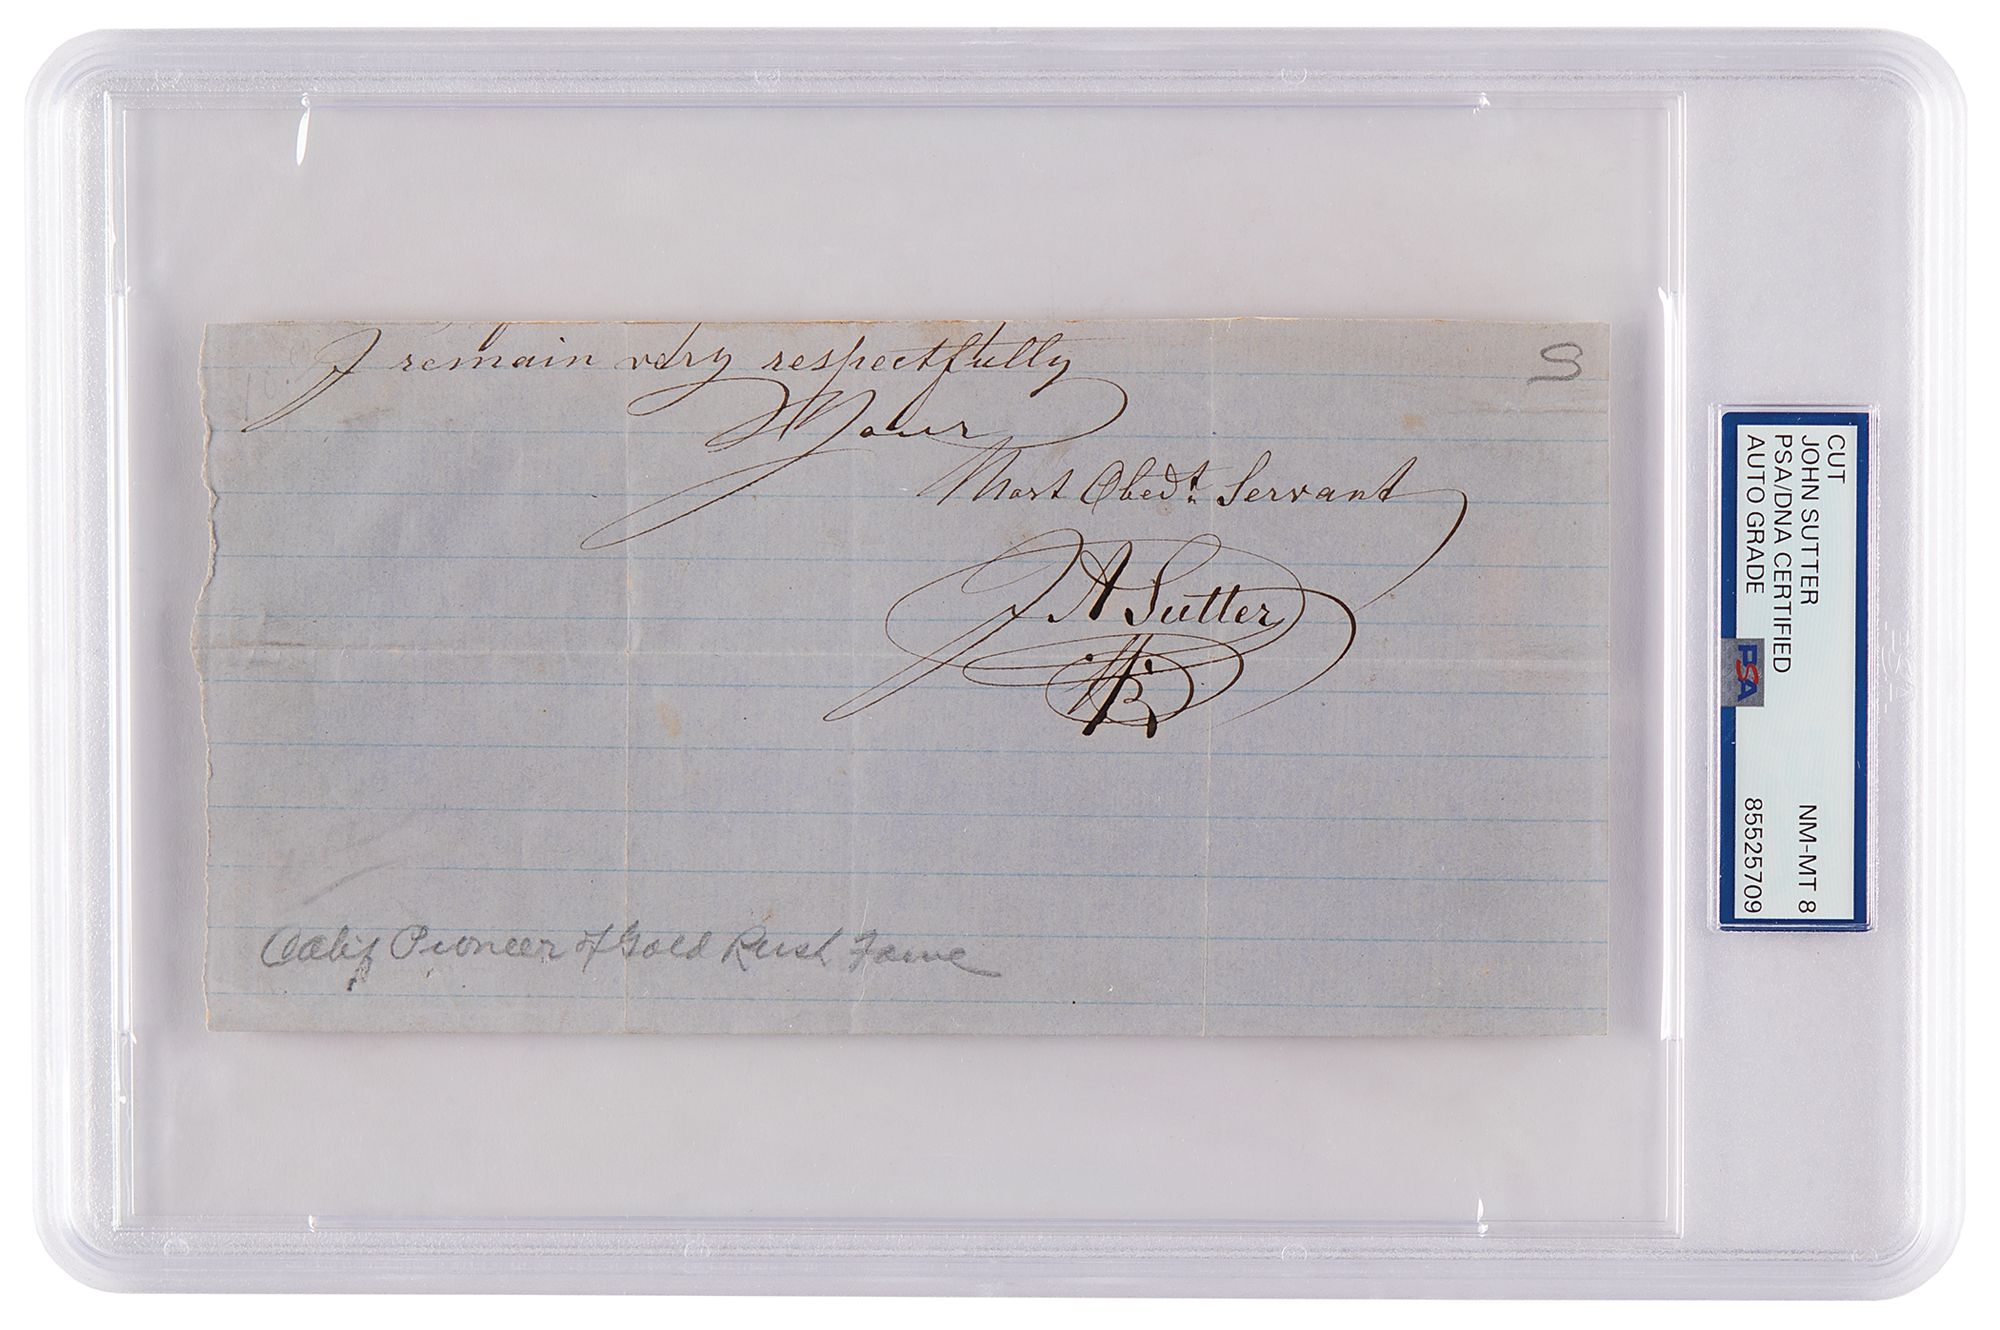 I remain very respectfully
S
Your
Most Obedt. Servant
J A Sutter
Calif Pioneer of Gold Rush Fame
CUT
JOHN SUTTER
PSA/DNA CERTIFIED NM-MT 8
AUTO GRADE 85525709
PSA